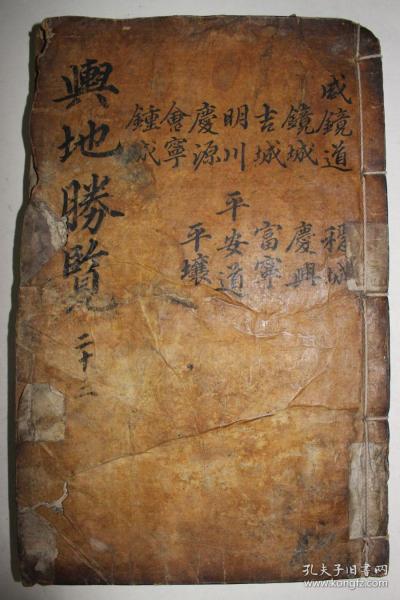 咸鏡道
鏡城
吉城
明川
慶源
會寧
鍾城
穩城
慶興
富寧
平安道
平壤
輿地勝覽
二十二
孔夫子旧书网
www.kongfz.com